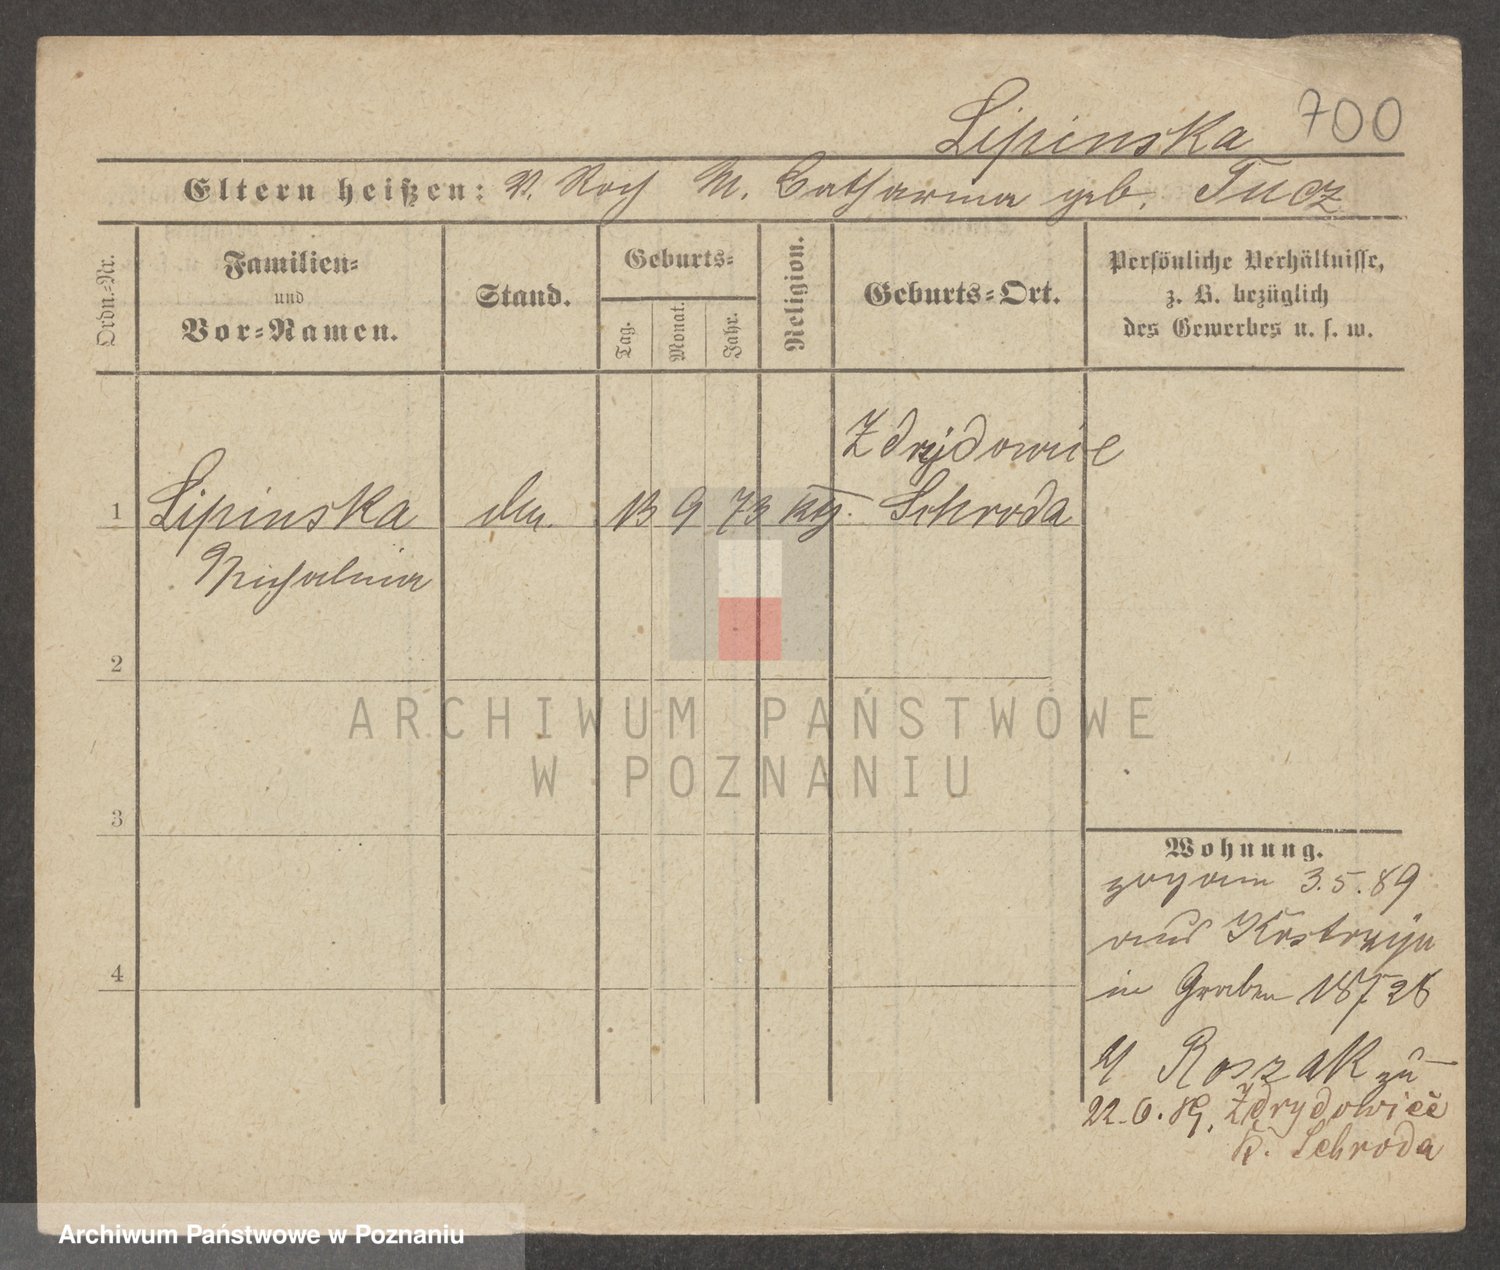 Lipinska 700
Eltern heißen: V. Roch M. Catharina geb. Tucz
Ordn.-Nr.
Familien-
und
Vor-Namen.
Stand.
Geburts-
Tag.
Monat.
Jahr.
Religion.
Geburts-Ort.
Persönliche Verhältnisse,
z. B. bezüglich
des Gewerbes u. s. w.
Zdrydowice
1 Lipinska 13 9 73 kth. Schroda
Michalina
2
3
4
Wohnung.
zog am 3.5.89
aus Kostrzyn
in Graben
Roszak zu
22.6.89. Zdrydowice
K. Schroda
ARCHIWUM PAŃSTWOWE
W POZNANIU
Archiwum Państwowe w Poznaniu